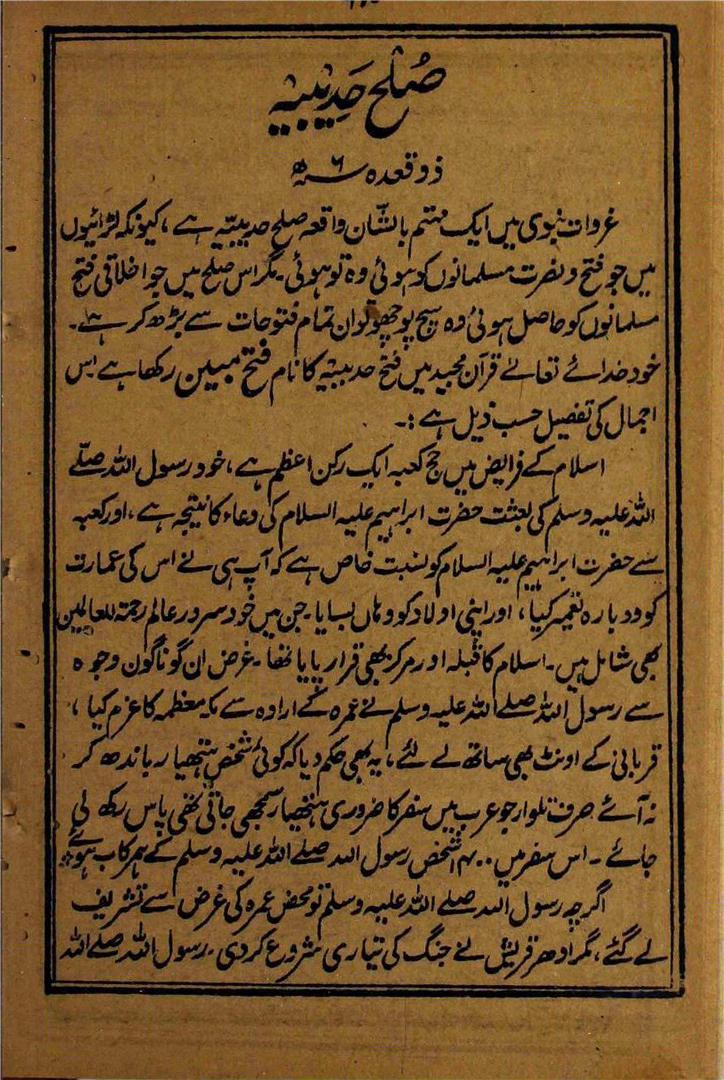 صُلح حُدیبیہ
ذوقعدہ ۶ سنہ ھ
غزوات نبوی میں ایک مہتم بالشّان واقعہ صلح حدیبیّہ ہے ، کیونکہ لڑائیوں
میں جو فتح و نصرت مسلمانوں کو ہوئی وہ تو ہوئی ۔ مگر اس صلح میں جو اخلاقی فتح
مسلمانوں کو حاصل ہوئی وہ سچ پوچھو تو ان تمام فتوحات سے بڑھ کر ہے ۔
خود خدائے تعالےٰ قرآن مجید میں فتح حدیبیّہ کا نام فتح مبین رکھا ہے اس
اجمال کی تفصیل حسب ذیل ہے :۔
اسلام کے فرایض میں حج کعبہ ایک رکن اعظم ہے ، خود رسول اللہ صلّے
اللہ علیہ وسلم کی بعثت حضرت ابراہیم علیہ السلام کی دعاء کا نتیجہ ہے ، اور کعبہ
سے حضرت ابراہیم علیہ السلام کو نسبت خاص ہے کہ آپ ہی نے اس کی عمارت
کو دوبارہ تعمیر کیا ، اور اپنی اولاد کو وہاں بسایا ۔ جن میں خود سرور عالم رحمۃ للعالمین
بھی شامل ہیں ۔ اسلام کا قبلہ اور مرکز بھی قرار پایا تھا ۔ غرض ان گوناگون وجوہ
سے رسول اللہ صلے اللہ علیہ وسلم نے عمرہ کے ارادہ سے مکہ معظمہ کا عزم کیا ،
قربانی کے اونٹ بھی ساتھ لے لئے ، یہ بھی حکم دیا کہ کوئی شخص ہتھیار باندھ کر
نہ آئے صرف تلوار جو عرب میں سفر کا ضروری ہتھیار سمجھی جاتی تھی پاس رکھ لی
جائے ۔ اس سفر میں ۱۴۰۰ شخص رسول اللہ صلے اللہ علیہ وسلم کے ہمرکاب ہوئے
اگرچہ رسول اللہ صلے اللہ علیہ وسلم تو محض عمرہ کی غرض سے تشریف
لے گئے ، مگر ادھر قریش نے جنگ کی تیاری شروع کر دی ۔ رسول اللہ صلے اللہ